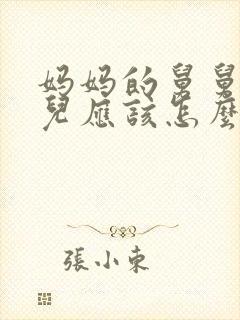 妈妈的舅舅
兒應該怎麼
張小東